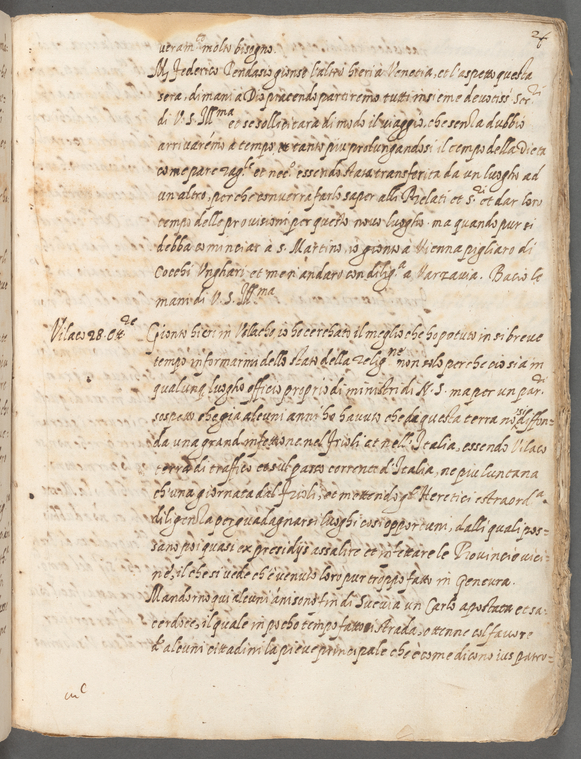 24
veram.te molto bisogno.
M. Federico Pendasio gionse l'altro hieri à Venetia, et l'aspetto questa
sera, dimani à Dio piacendo partiremo tutti insieme devotiss. Ser.ri
di V. S. Ill.ma et se sollicitarà di modo il viaggio, che senza dubbio
arrivaremo à tempo et tanto piu prolungandosi il tempo della Dieta
come pare rag.le et nec.o essendo stata transferita da un luogho ad
un'altro, perche converrà farlo saper alli Prelati et S.ri et dar loro
tempo delle provisioni per questo novo luogho. ma quando pur si
debba cominciar à S. Martino, io gionto à Vienna pigliarò di
Cocchi Unghari et me n'andarò con dilig.a à Varzavia. Bacio le
mani di V. S. Ill.ma
Vilaco 28. Ott.re Gionto hieri in Vilacho, io ho cerchato il meglio che ho potuto in si breve
tempo informarmi dello stato della Relig.ne non solo perche ciò sia in
qualunq. luogho officio proprio di ministri di N. S. ma per un par.
sospetto che già alcuni anni ho havuto che da questa terra no si diffon=
da una grand'infettione nel Frioli et nell'Italia, essendo Vilaco
terra di traffico et sul passo corrente d'Italia, ne piu luntana
ch'una giornata dal Frioli, et mettendo gli Heretici estraord.a
diligenza per guadagnarsi luoghi così opportuni, dalli quali pos=
sano poi quasi ex presidijs assalire et infettare le Provincie vici=
ne, il che si vede ch'è venuto loro pur troppo fatto in Genevra.
Mandorno qui alcuni anni sono fin di Suevia un Carlo apostata et sa=
cerdote, il quale in pocho tempo fattosi strada, ottenne col favore
d'alcuni cittadini la pieve principale che è come dicono ius patro=